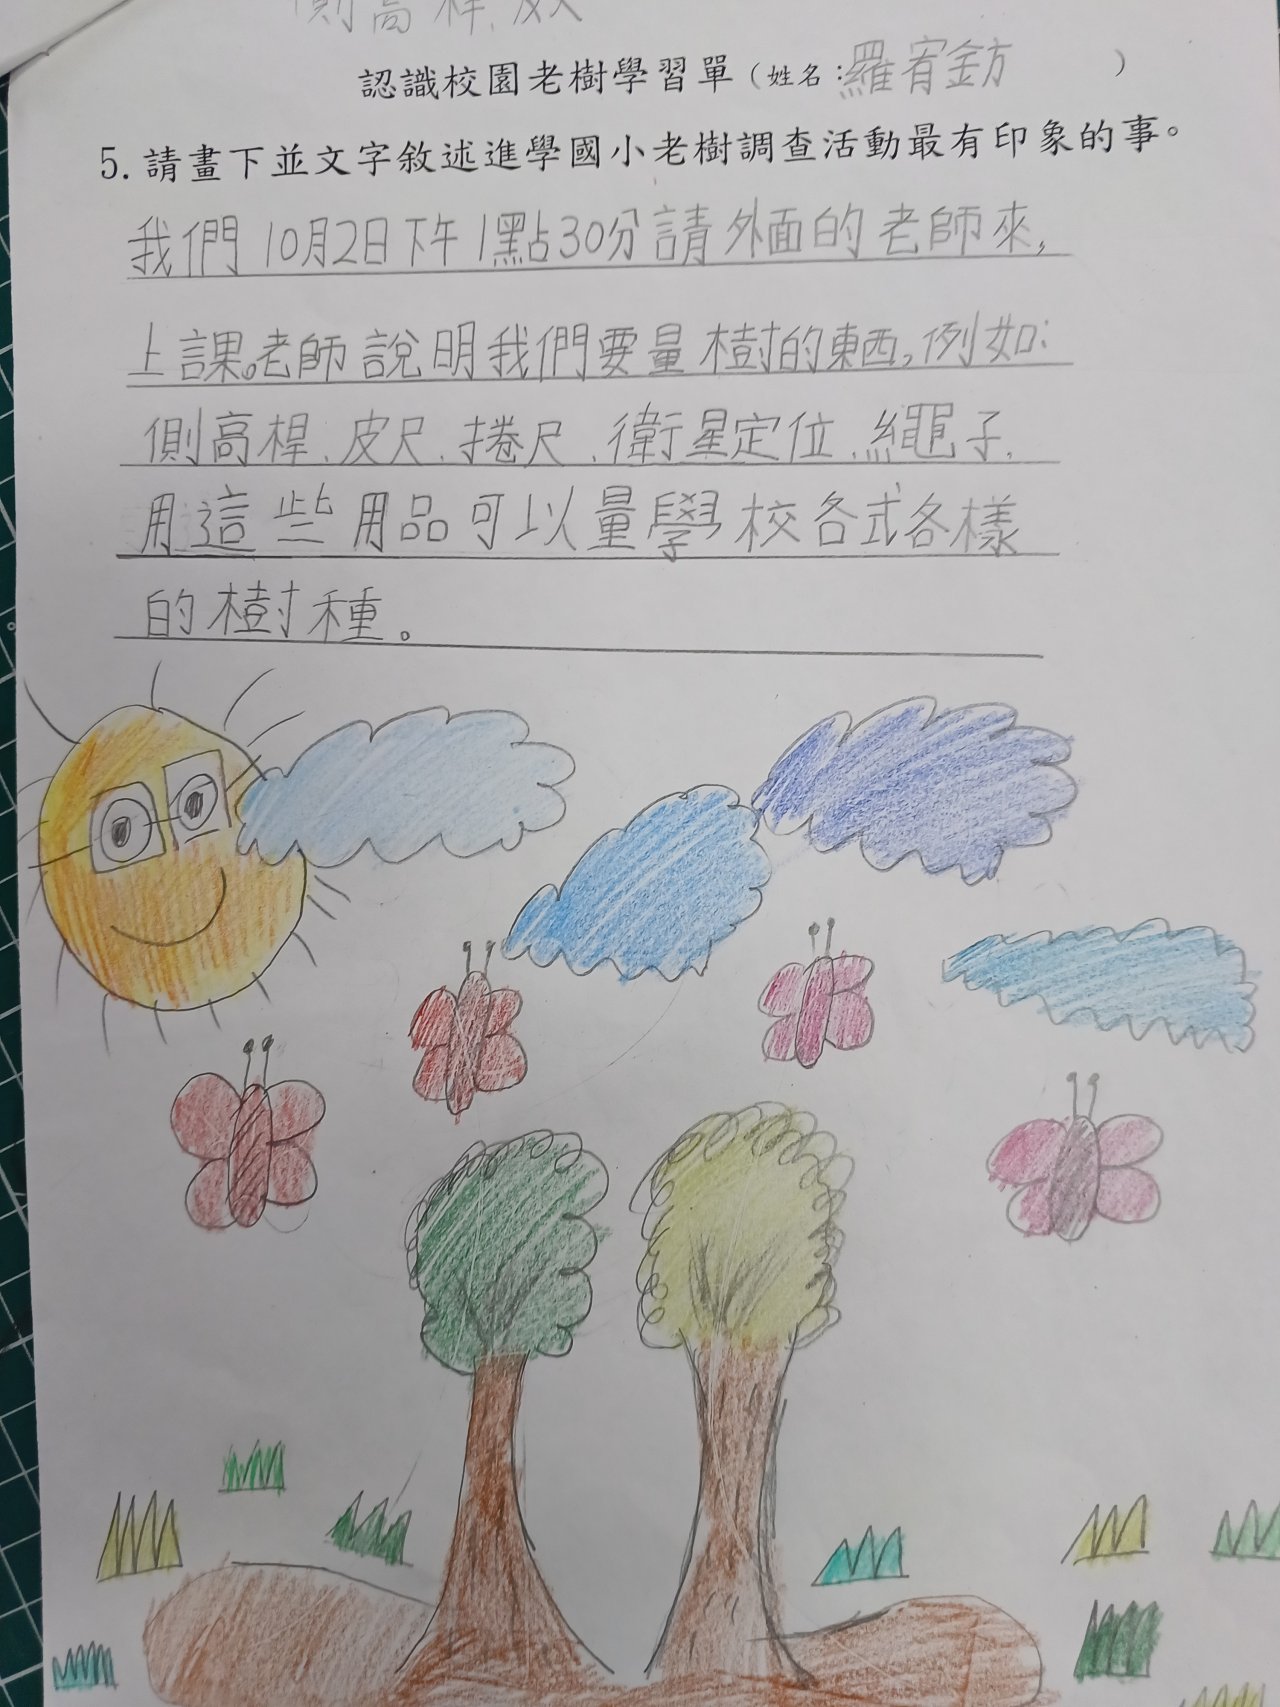 側高桿、皮尺
認識校園老樹學習單（姓名：羅宥鈁）
5. 請畫下並文字敘述進學國小老樹調查活動最有印象的事。
我們10月2日下午1點30分請外面的老師來，
上課。老師說明我們要量樹的東西，例如：
側高桿、皮尺、捲尺、衛星定位、繩子，
用這些用品可以量學校各式各樣
的樹種。